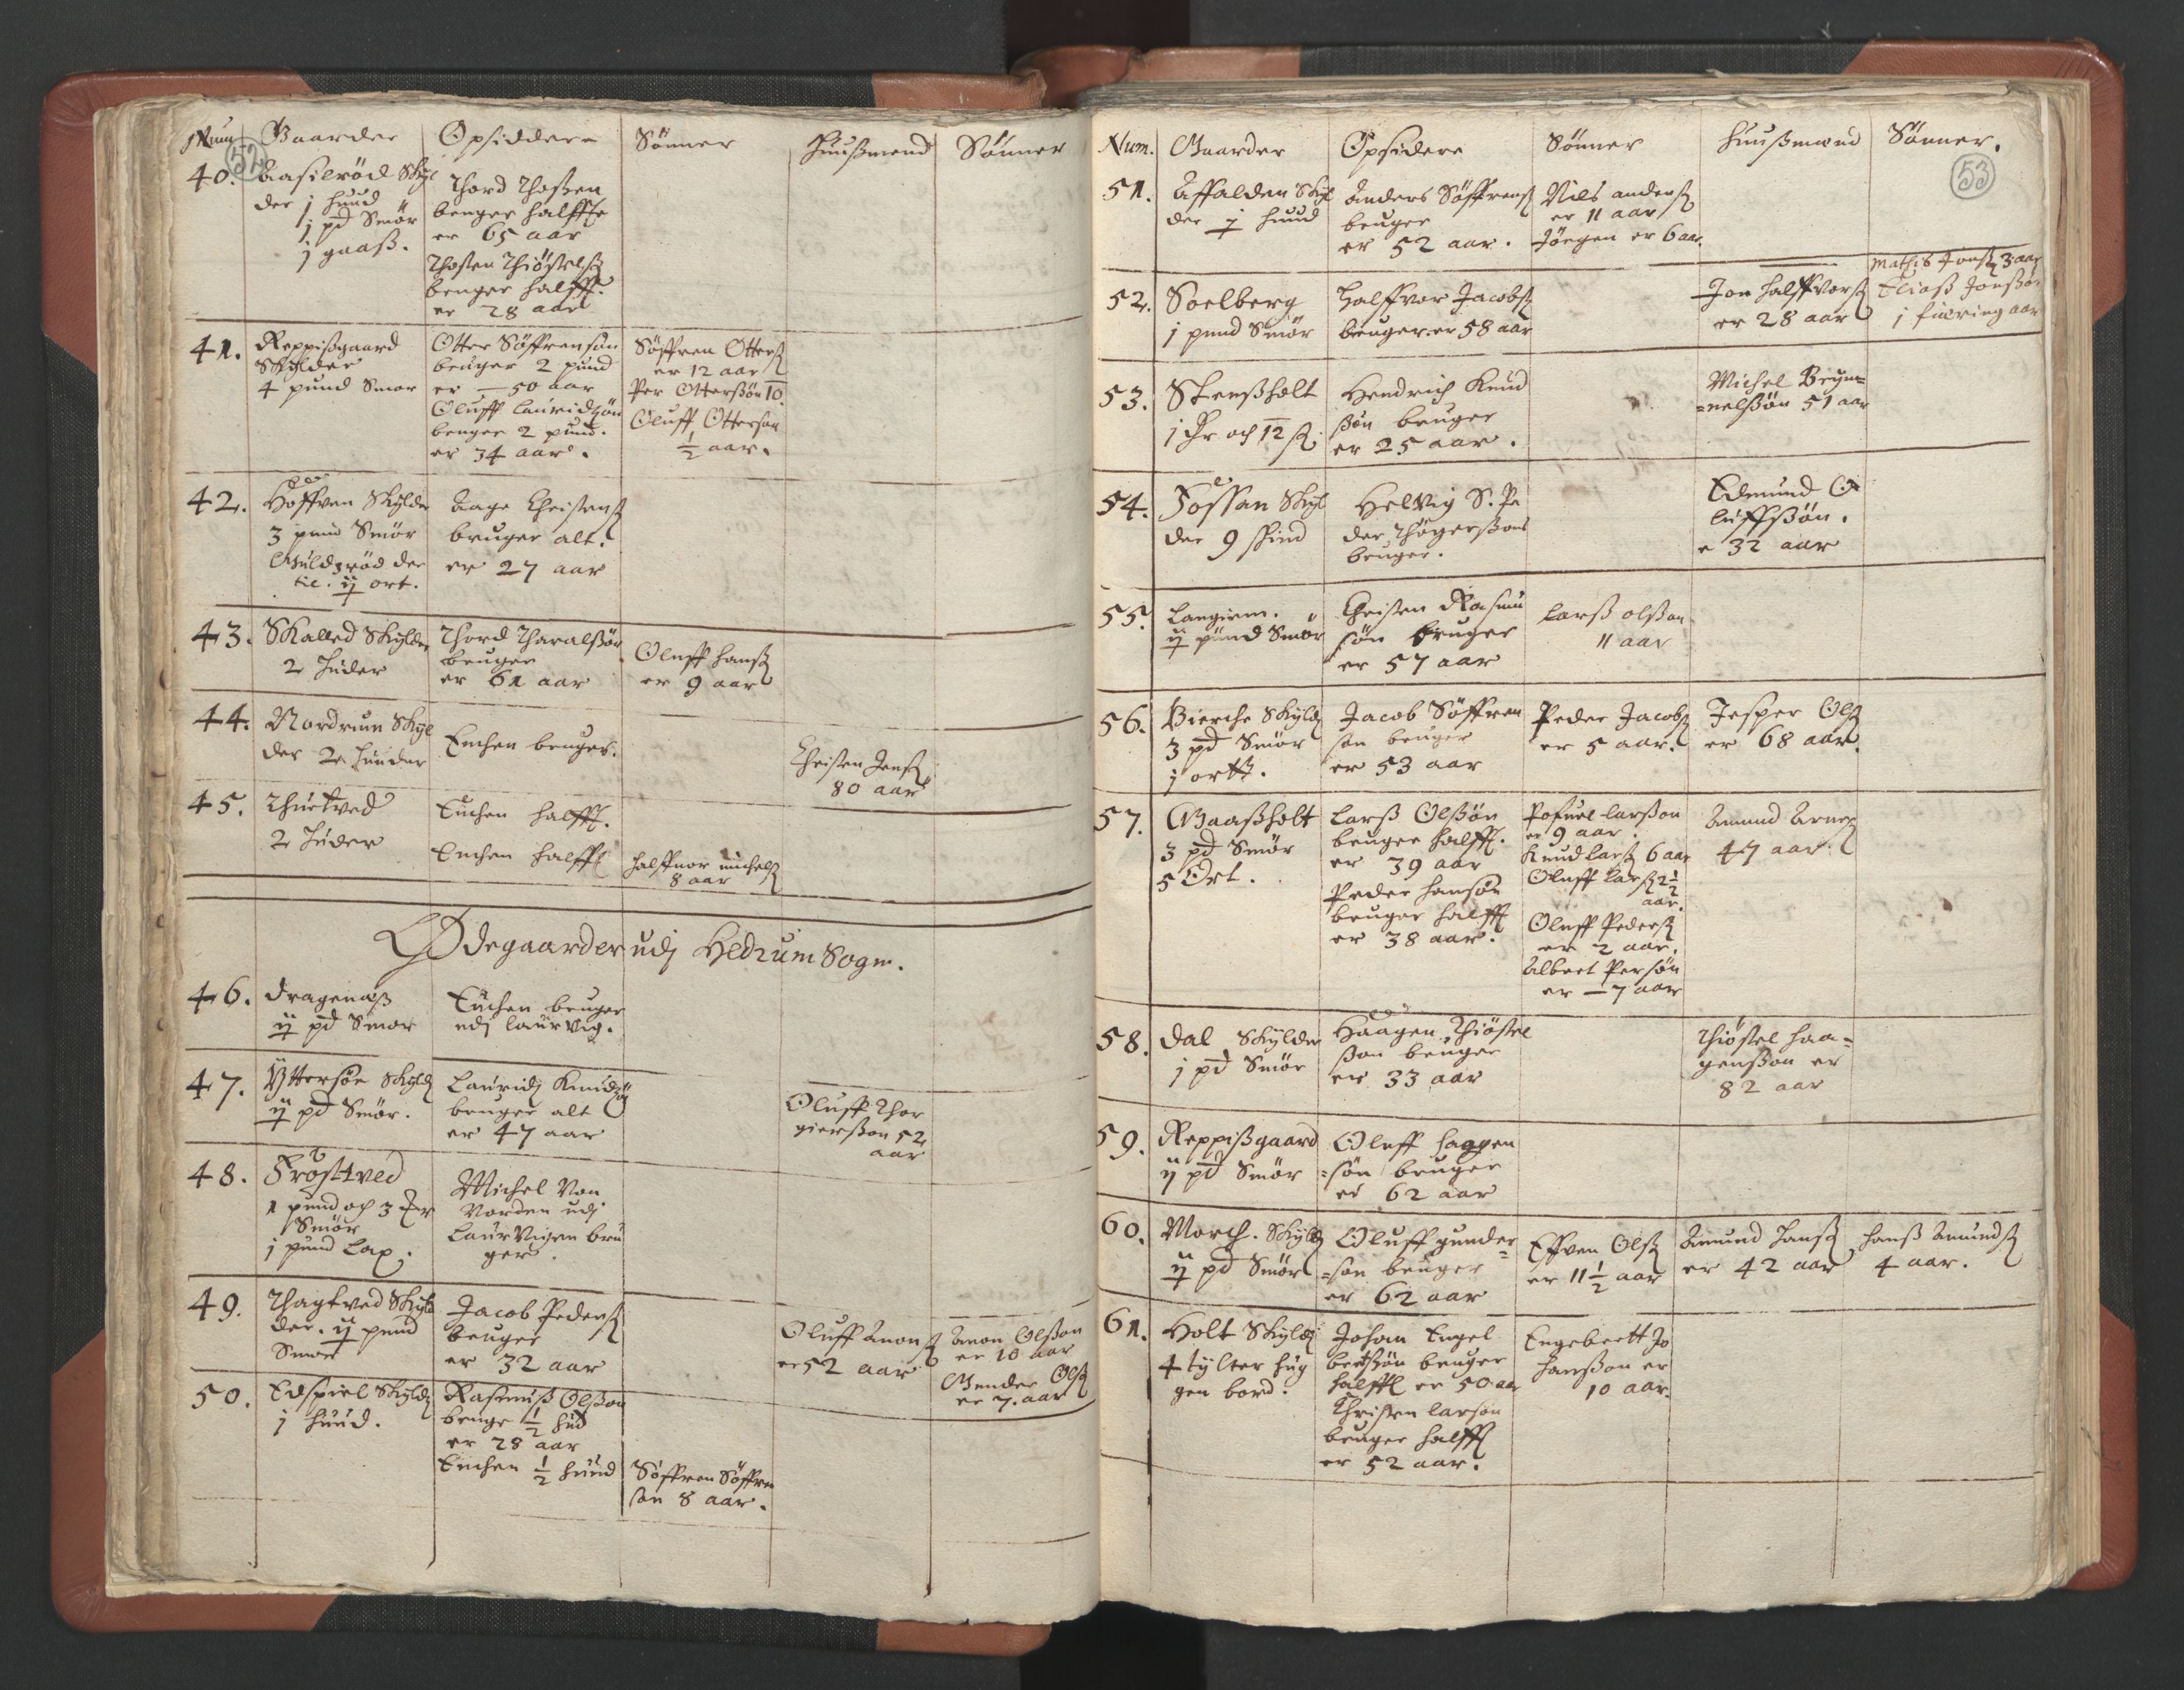 Num Gaarder Opsiddere Sønner Huußmend Sønner
52
40. Aasilrød Skyl
der j huud
j pd Smør
j gaaß.
Thord Thoßen
bruger halffte
er 65 aar
Thosten Thiøstelß
bruger halfft.
er 28 aar
41. Reppißgaard
Skylder
4 pund Smør
Otter Søffrensøn
bruger 2 pund
er — 50 aar
Oluff Lauridzøn
bruger 2 pund.
er 34 aar.
Søffren Otterß
er 12 aar
Per Otterßøn 10.
Oluff Otterson
½ aar.
42. Hoffven Skylder
3 pund Smør
Guldzrød der
til. ij ort.
Aage Christenß
bruger alt.
er 27 aar
43. Skalled Skylder
2 Huder
Thord Tharalßøn
bruger
er 61 aar
Oluff Hanß
er 9 aar
44. Nordrum Skyl
der 2 Huuder
Enchen bruger.
Christen Jenß
80 aar
45. Thuetved
2 Huder
Enchen halfft.
Enchen halfft
Halffuor Michelß
8 aar
Ødegaarder udj Hedrum Sogn.
46. Dragenæß
ij pd Smør
Enchen bruger
udj Laurvig.
47. Yttersøe Skyld
ij pd Smør.
Lauridz Knudzøn
bruger alt
er 47 aar
Oluff Thor
gierßon 52
aar
48. Frøstved
1 pund och 3
Smør
j pund Lax.
Michel Von
Norden udj
Laurvigen bru
ger.
49. Thagtved Skyl
der. ij pund
Smør
Jacob Pederß
bruger
er 32 aar
Oluff Anonß
er 52 aar
Anon Olßon
er 10 aar
Gunder Olß
er 7. aar
50. Edspiel Skyld
j Huud.
Rasmuß Olßon
bruger ½ Hud
er 28 aar
Enchen ½ Huud
Søffren Søffren
søn 8 aar.
Num. Gaarder Opsidere Sønner Huußmænd Sønner.
53
51. Affalden Skyl
der j huud
Anders Søffrenß
bruger
er 52 aar.
Nils Anderß
er 11 aar
Jørgen er 6 aar.
52. Soelberg
j pund Smør
Halffvor Jacobß
bruger er 58 aar
Jon Halffvorß
er 28 aar
Mathis Jonß 3 aar
Eliaß Jonßøn
j fiering aar
53. Stenßholt
j Hr och 12 ß.
Hendrich Knud
ßøn bruger
er 25 aar.
Michel Brym=
=nelßøn 51 aar
54. Fossan Skyl
der 9 skind
Helvig S. Pe
der Thøgerßøns
bruger.
Edmund O
luffßøn.
e 32 aar
55. Langrim.
ij pund Smør
Christen Rasmu
søn bruger
er 57 aar
Larß Olßon
11 aar
56. Bierche Skyld
3 pd Smør
j ortt.
Jacob Søffren
søn bruger
er 53 aar
Peder Jacobß
er 5 aar.
Jesper Olß
er 68 aar
57. Gaaßholt
3 pd Smør
5 Ort.
Larß Olßøn
bruger halfft.
er 39 aar
Peder Hansøn
bruger halfft
er 38 aar.
Pofuel Larßon
er 9 aar.
Knud Larß 6 aar
Oluff Larß 2½
aar.
Oluff Pederß
er 2 aar.
Albret Persøn
er — 7 aar
Amund Arneß
47 aar.
58. Dal Skylder
j pd Smør
Haagen Thiøstel
ßøn bruger
er 33 aar
Thiøstel Haa=
genßøn er
82 aar
59. Reppißgaard
ij pd Smør
Oluff Haggen
=søn bruger
er 62 aar
60. March. Skyld
ij pd Smør
Oluff Gunder=
=søn bruger
er 62 aar
Effven Olß
er 11½ aar
Amund Hanß
er 42 aar
Hanß Amundß
4 aar.
61. Holt Skyld
4 tylter hug
gen bord.
Johan Engel
bretßøn bruger
halfft er 50 aar
Christen Larsøn
bruger halfft
er 52 aar.
Engebrett Jo
hanßon er
10 aar.